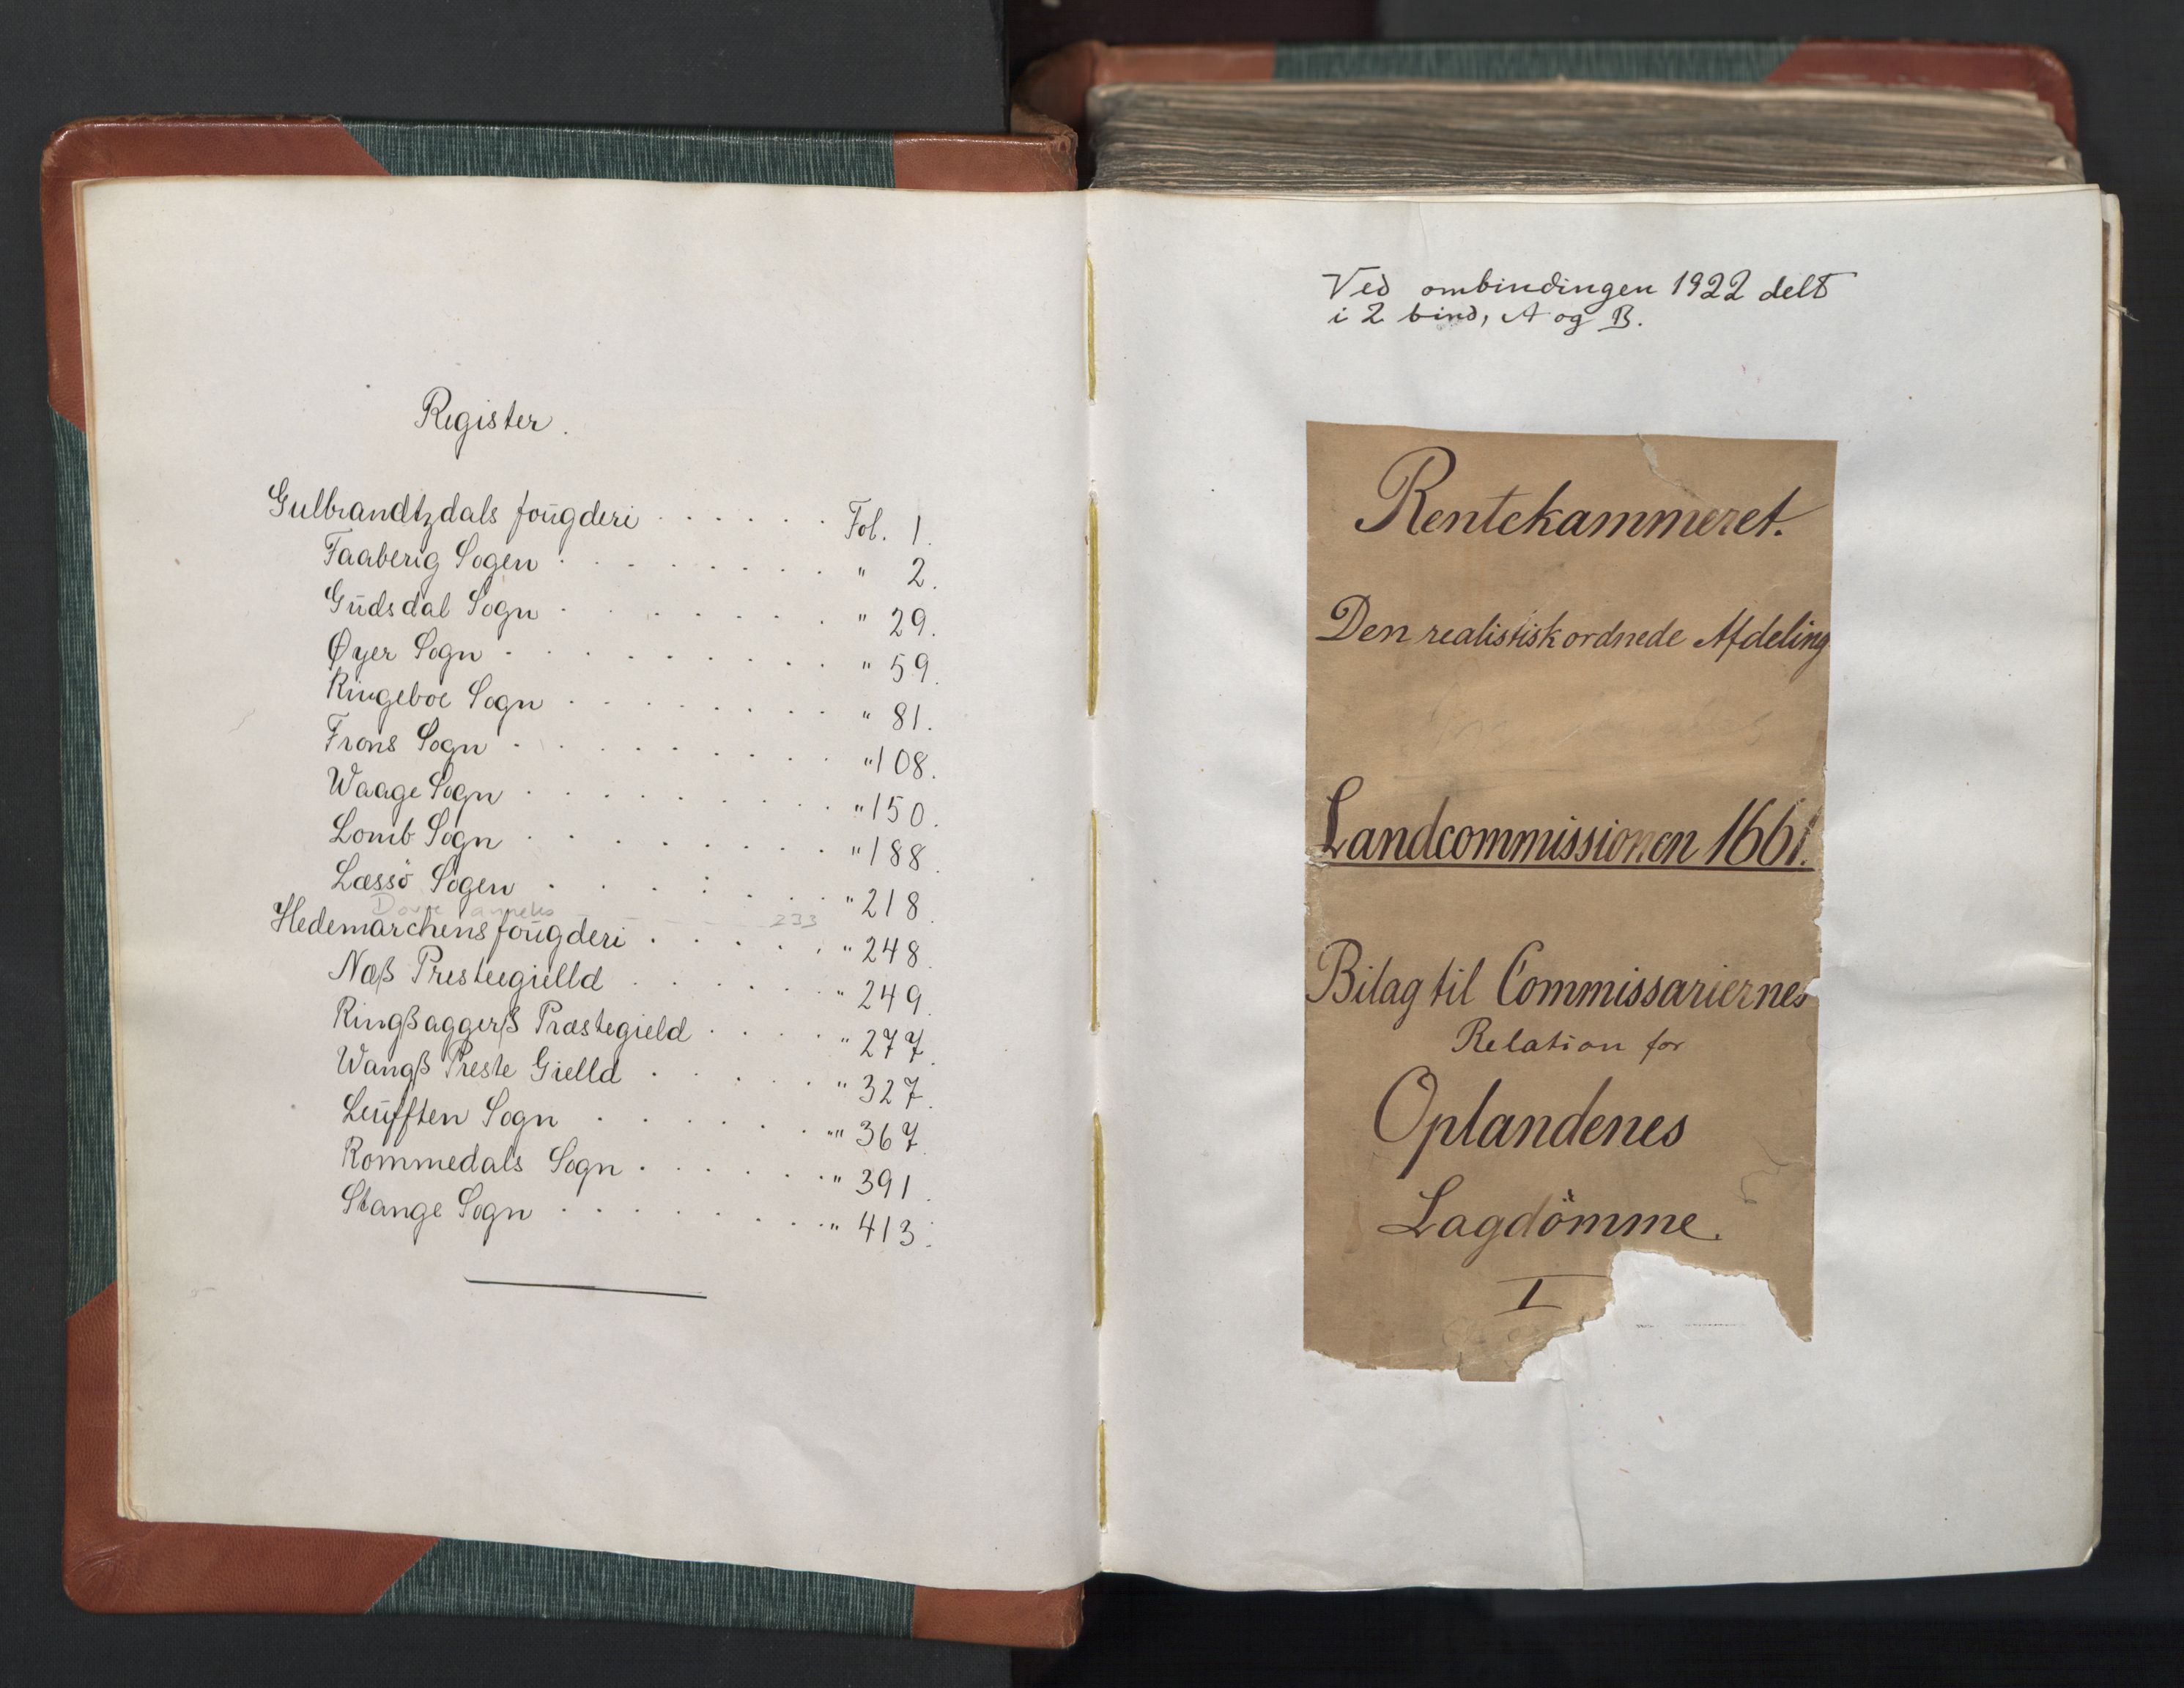 Register.
Gulbrandtzdals foŭgderi . . . . . . Fol. 1.
Faaberig Sogen . . . . . . . . " 2.
Gŭdsdal Sogn . . . . . . . " 29.
Øyer Sogn . . . . . . . . " 59.
Ringeboe Sogn . . . . . . . . " 81.
Frons Sogn . . . . . . . . " 108.
Waage Sogn . . . . . . . . " 150.
Lomb Sogn . . . . . . . . " 188.
Læssö Sogen . . . . . . . " 218.
Dovre anneks - - - - 233
Hedemarchens foŭgderi . . . . . " 248.
Næß Presteegielld . . . . . . " 249.
Ringßaggerß Præstegield . . . . " 277.
Wangß Preste Gielld . . . . . . " 327.
Leŭfften Sogn . . . . . . " 367.
Rommedals Sogn . . . . . . " 391.
Stange Sogn . . . . . . . . " 413.
Ved ombindingen 1922 delt
i 2 bind, A og B.
Rentekammeret.
Den realistisk ordnede Afdeling
Landcommissionen 1661.
Bilag til Commissariernes
Relation for
Oplandenes
Lagdömme.
I